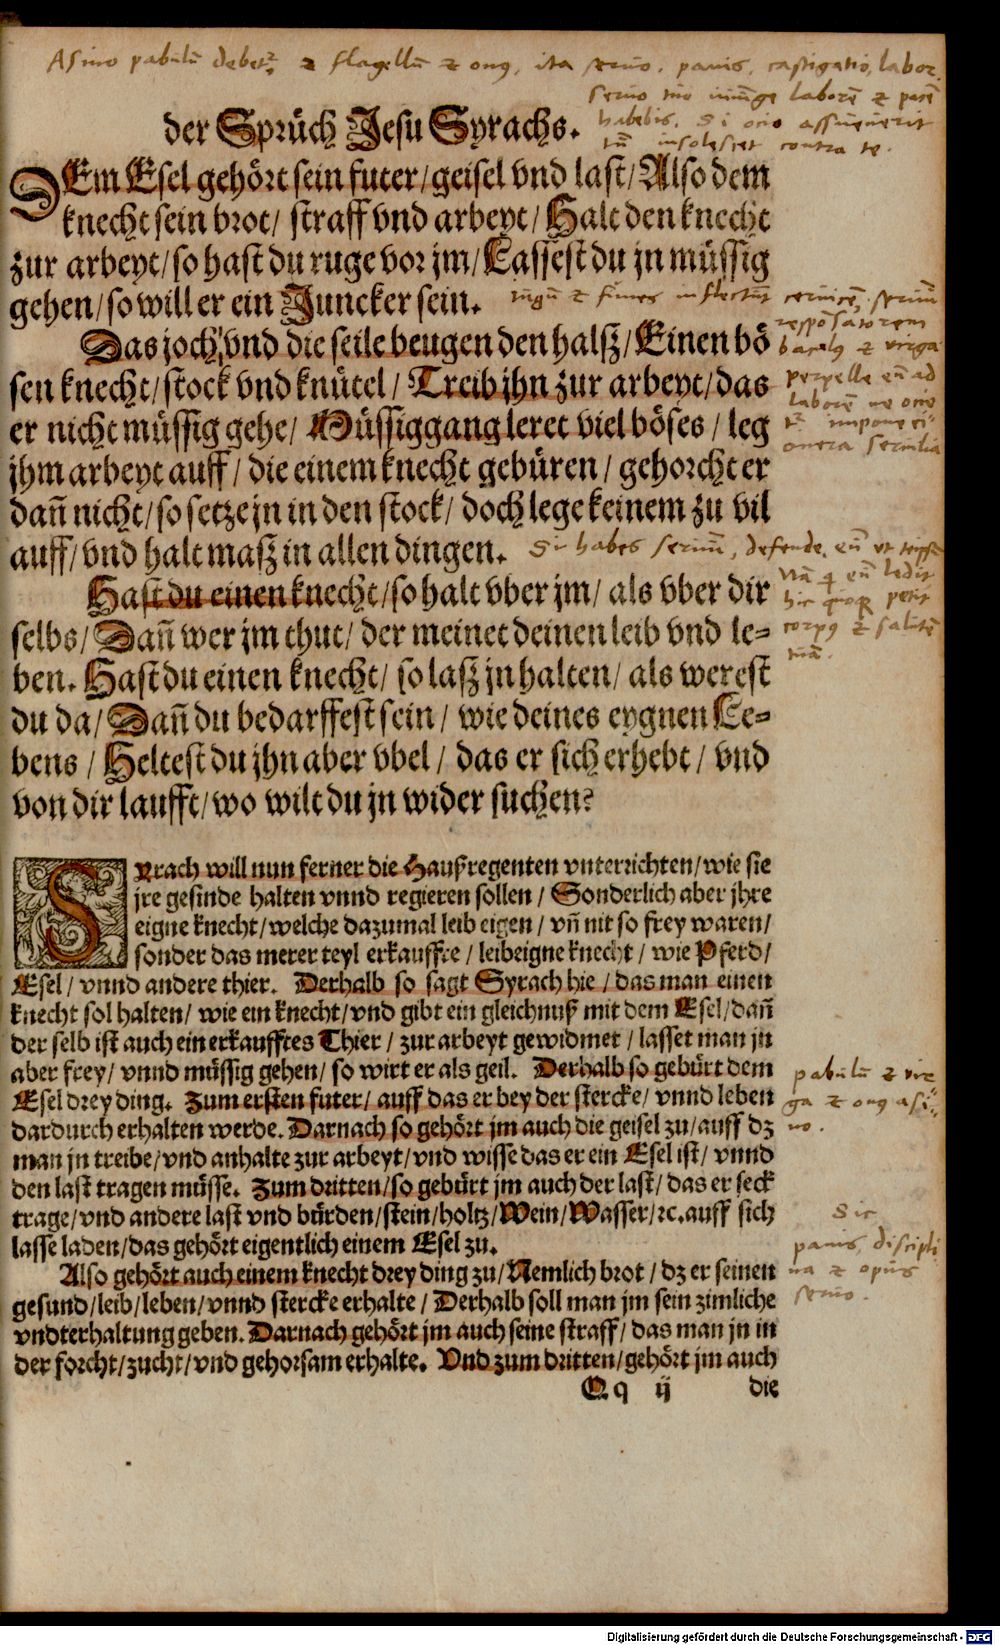 Asino pabulū debet~, & flagellū & onꝰ, ita servo, panis, castigatio, labor.
servo tuo iniūge laborē &
habebis. Si ocio assueverit
tū insolescet contra te.
der Sprüch Jesu Syrachs.
DEm Esel gehört sein futer/geisel vnd last/Also dem
knecht sein brot/ straff vnd arbeyt/Halt den knecht
zur arbeyt/so hast du ruge vor jm/Lassest du jn müssig
gehen/so will er ein Juncker sein.
iugū & funes inflectūt cervicē, servū
Das joch/vnd die seile beugen den halsz/Einen bö
sen knecht/stock vnd knütel/ Treib jhn zur arbeyt/das
er nicht müssig gehe/ Müssiggang leret viel böses/leg
jhm arbeyt auff/die einem knecht gebüren/gehorcht er
dañ nicht/so setze jn in den stock/ doch lege keinem zu vil
auff/vnd halt masz in allen dingen.
responsatorem
baculꝰ & virga
perpelle eū ad
laborē ne
impone ei
onera servilia
Si habes servū, defende eū ut teipsū
Hast du einen knecht/so halt vber jm/als vber dir
selbs/Dañ wer jm thut/ der meinet deinen leib vnd le=
ben. Hast du einen knecht/ so lasz jn halten/als werest
du da/Dañ du bedarffest sein/wie deines eygnen Le=
bens/Heltest du jhn aber vbel/das er sich erhebt/vnd
von dir laufft/wo wilt du jn wider suchen?
Nā q eū ledit
hic quoqꝫ petit
corpꝰ & salutē
tuā.
SYrach will nun ferner die Haußregenten vnterrichten/wie sie
jre gesinde halten vnnd regieren sollen/Sonderlich aber jhre
eigne knecht/welche dazumal leib eigen/vñ nit so frey waren/
sonder das merer teyl erkauffte/leibeigne knecht/wie Pferd/
Esel/vnnd andere thier. Derhalb so sagt Syrach hie/das man einen
knecht sol halten/wie ein knecht/vnd gibt ein gleichnuß mit dem Esel/dañ
der selb ist auch ein erkaufftes Thier/zur arbeyt gewidmet/lasset man jn
aber frey/vnnd müssig gehen/so wirt er als geil. Derhalb so gebürt dem
Esel drey ding. Zum ersten futer/auff das er bey der stercke/vnnd leben
dardurch erhalten werde. Darnach so gehört jm auch die geisel zu/auff dz
man jn treibe/vnd anhalte zur arbeyt/vnd wisse das er ein Esel ist/vnnd
den last tragen müsse. Zum dritten/so gebürt jm auch der last/das er seck
trage/vnd andere last vnd bürden/stein/holtz/Wein/Wasser/ꝛc.auff sich
lasse laden/das gehört eigentlich einem Esel zu.
pabulū & vir
ga & onꝰ asi
no.
Also gehört auch einem knecht drey ding zu/Nemlich brot/dz er seinen
gesund/leib/leben/vnnd stercke erhalte/Derhalb soll man jm sein zimliche
vndterhaltung geben. Darnach gehört jm auch seine straff/das man jn in
der forcht/zucht/vnd gehorsam erhalte. Vnd zum dritten/gehört jm auch
Sic
panis, discipli
na & opus
servo.
Qq ij die
Digitalisierung gefördert durch die Deutsche Forschungsgemeinschaft - DFG